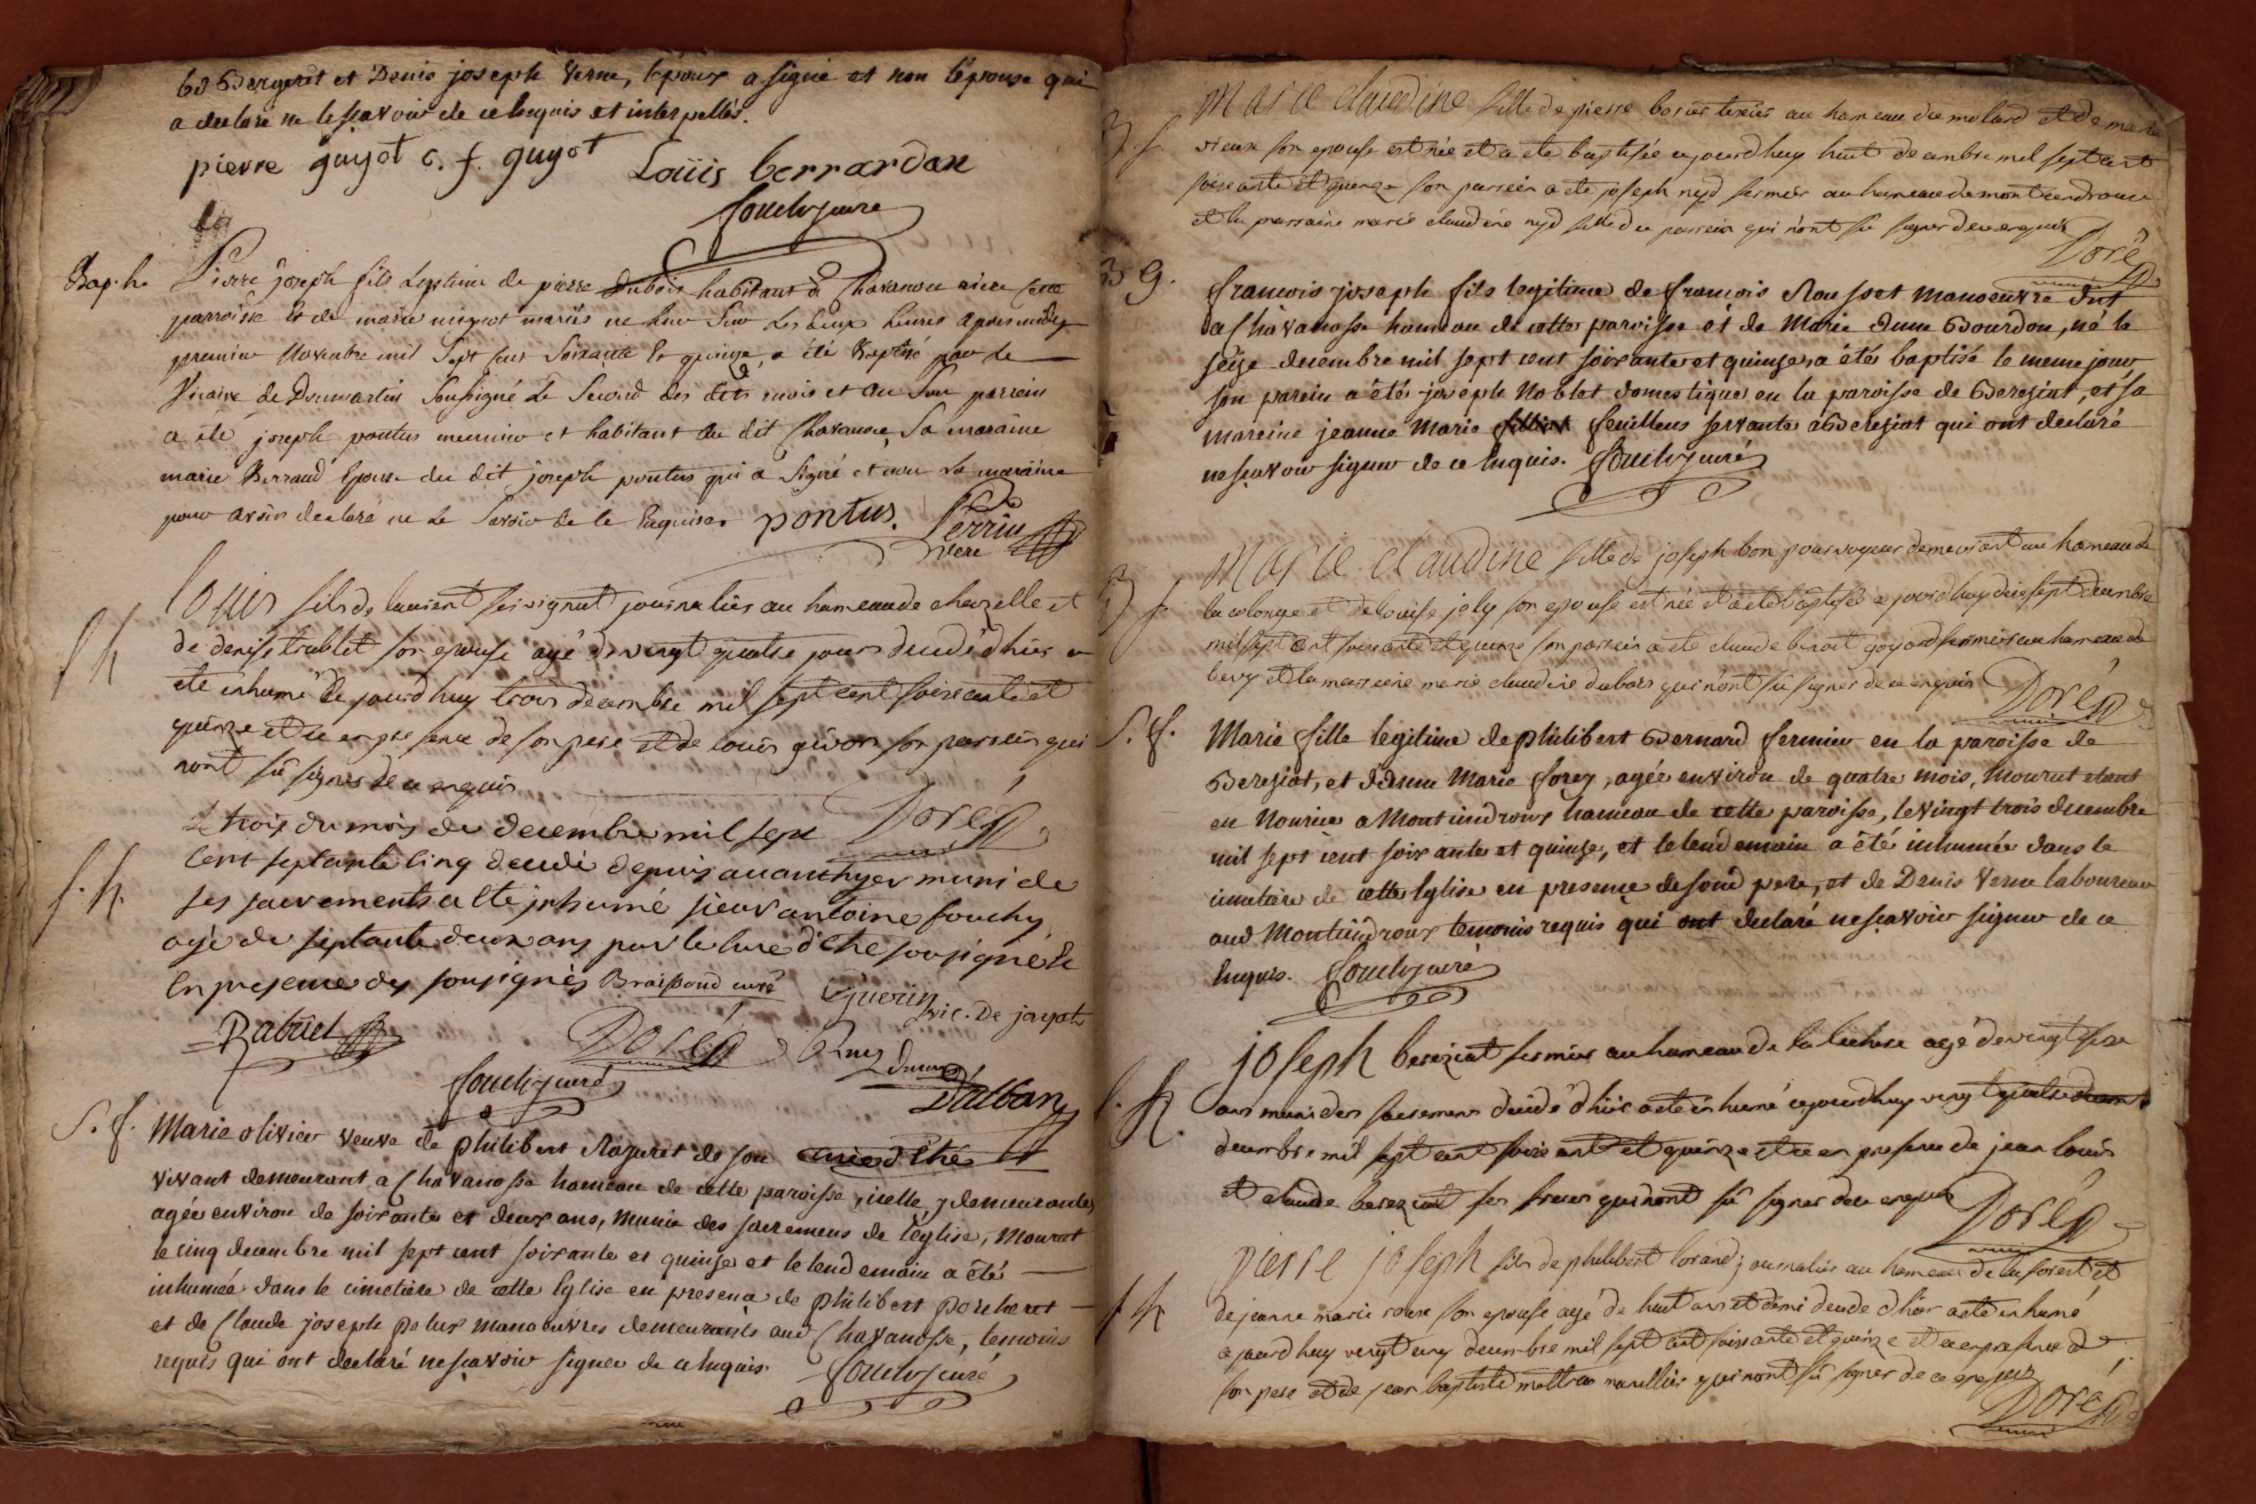 Bd Bergeret et Denis joseph Verne, l'epoux a signé et non l'epouse qui
a declaré ne le sçavoir de ce Enquis et interpellés.
pierre guyot c. f. guyot Loüis berrardan
fouchy curé
Bap. h.
Pierre joseph fils Legitime de pierre Dubois habitant à Chavanou riere cette
parroisse Et de marie mignot mariés ne hier Sur Les deux heures apres midy
premier Novembre mil Sept cent Soixante Et quinze, a été Baptisé par le
Vicaire de Domartin Soussigné Le Second des dits mois et an Son parrein
a été joseph pontus meunier et habitant du dit Chavanne, Sa maraine
marie Berraud Epouse du dit joseph pontus qui a Signé et non La maraine
pour avoir declaré ne Le Savoir de ce Enquise pontus. Perrin
vicre
S h
Loüis fils de laurent journalier au hameau de chazelle et
de denise trablet son epouse agé de vingt quatre jours decedé d'hier a
eté inhumé ce jourd'huy trois decembre mil sept cent soixante et
quinze et ce en presence de son pere et de loüis givor son parrein qui
n'ont sû signer de ce enquis
Doré
S. h.
Le trois du mois de decembre mil sept
cent septante cinq decedé depuis avant hyer muni de
ses sacrements a été inhumé sieur antoine fouchy
agé de septante deux ans par le curé d'Etré soussigné Et
En presence des soussignés Braissoud curé Guerin vic. De jayat
Rabuel Doré
fouchy curé Dalban
S. f.
Marie olivier veuve de philibert Nazaret de son
vivant demeurant a Chavanosse hameau de cette paroisse, icelle y demeurante,
agée environ de soixante et deux ans, Munie des sacremens de l'eglise, Mourut
le cinq decembre mil sept cent soixante et quinze et le lendemain a été
inhumée dans le cimetiere de cette Eglise en presence de philibert Porcheret
et de Claude joseph Pelux manoeuvres demeurants aud Chavanosse, temoins
requis qui ont declaré ne sçavoir signer de ce Enquis. fouchy curé
B f
Marie claudine fille de pierre borier texier au hameau du molard et de marie
vieux son epouse est née et a eté baptisée aujourd'huy huit decembre mil sept cent
soixante et quinze son parrein a eté joseph nyd fermier au hameau de montcindroux
et la marraine marie claudine nyd fille du parrein qui n'ont sû signer de ce enquis
Doré
B G.
françois joseph fils legitime de françois Rousset Manoeuvre Dnt
a Chavanosse hameau de cette paroisse et de Marie Anne Bourdon, né le
seize decembre mil sept cent soixante et quinze, a étés baptisé le meme jour
son parein a étés joseph Noblet domestique en la paroisse de Bereziat, et sa
mareine jeanne Marie feuillens servante a Bereziat qui ont declaré
ne sçavoir signer de ce Enquis. fouchy curé
B f
Marie claudine fille de joseph bon pourvoyeur demeurant au hameau de
la colonge et de louise joly son epouse est née et a eté baptisée ajourd'huy dix sept decembre
mil sept cent soixante et quinze son parrein a eté claude benoit goyard fermier au hameau de
bevy et la marreine marie claudine dubois qui n'ont sû signer de ce enquis Doré
S. f.
Marie fille legitime de philibert Bernard fermier en la paroisse de
Bereziat, et d'Anne Marie forey, agée environ de quatre mois, Mourut etant
en Nourice a Montcindroux hameau de cette paroisse, le vingt trois decembre
mil sept cent soixante et quinze, et le lendemain a été inhumée dans le
cimetiere de cette Eglise en presence de son d pere, et de Denis Verne laboureur
aud Montcindroux temoins requis qui ont declaré ne sçavoir signer de ce
Enquis. fouchy curé
S. h.
joseph bereziat fermier au hameau de la lechere agé de vingt
ans muni des sacremens decédé d'hier a eté inhumé ajourd'huy vingt quatre
decembre mil sept cent soixante et quinze et ce en presence de jean louis
et claude bereziat ses freres qui n'ont sû signer de ce enquis
Doré
S h
pierre joseph fils de philibert journalier au hameau de la forest et
de jeanne marie roux son epouse agé de huit ans et demi decedé d'hier a eté inhumé
ajourd'huy vingt decembre mil sept cent soixante et quinze et ce en presence de
son pere et de jean baptiste marellier qui n'ont sû signer de ce enquis
Doré